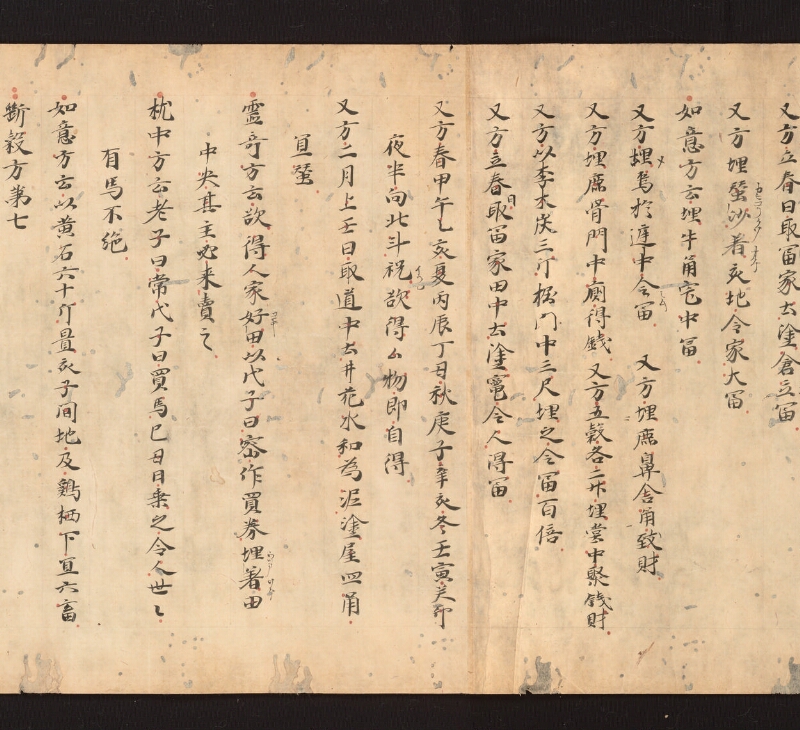 又方立春日取冨家土塗倉立冨
又方埋蚕沙着亥地令家大冨
如意方云埋牛角宅中冨
又方埋馬於遅中令冨　又方埋鹿鼻舎角致財
又方埋鹿骨門中廁得錢又方五穀各二升埋堂中聚錢財
又方以李木灰三斤掘門中三尺埋之令冨百倍
又方立春日取冨家田中土塗竈令人得冨
又方春甲午乙亥夏丙辰丁丑秋庚子辛亥冬壬寅癸卯
夜半向北斗祝欲得ム物即自得
又方二月上壬日取道中土井花水和為泥塗屋四角
宜蚕
霊奇方云欲得人家好田以戊子日密作買券埋着田
中央其主必来賣之
枕中方云老子曰常戊子日買馬己丑日乗之令人世〻
有馬不絶
如意方云以黄石六十斤置亥子間地及鷄栖下宜六畜
断穀方第七